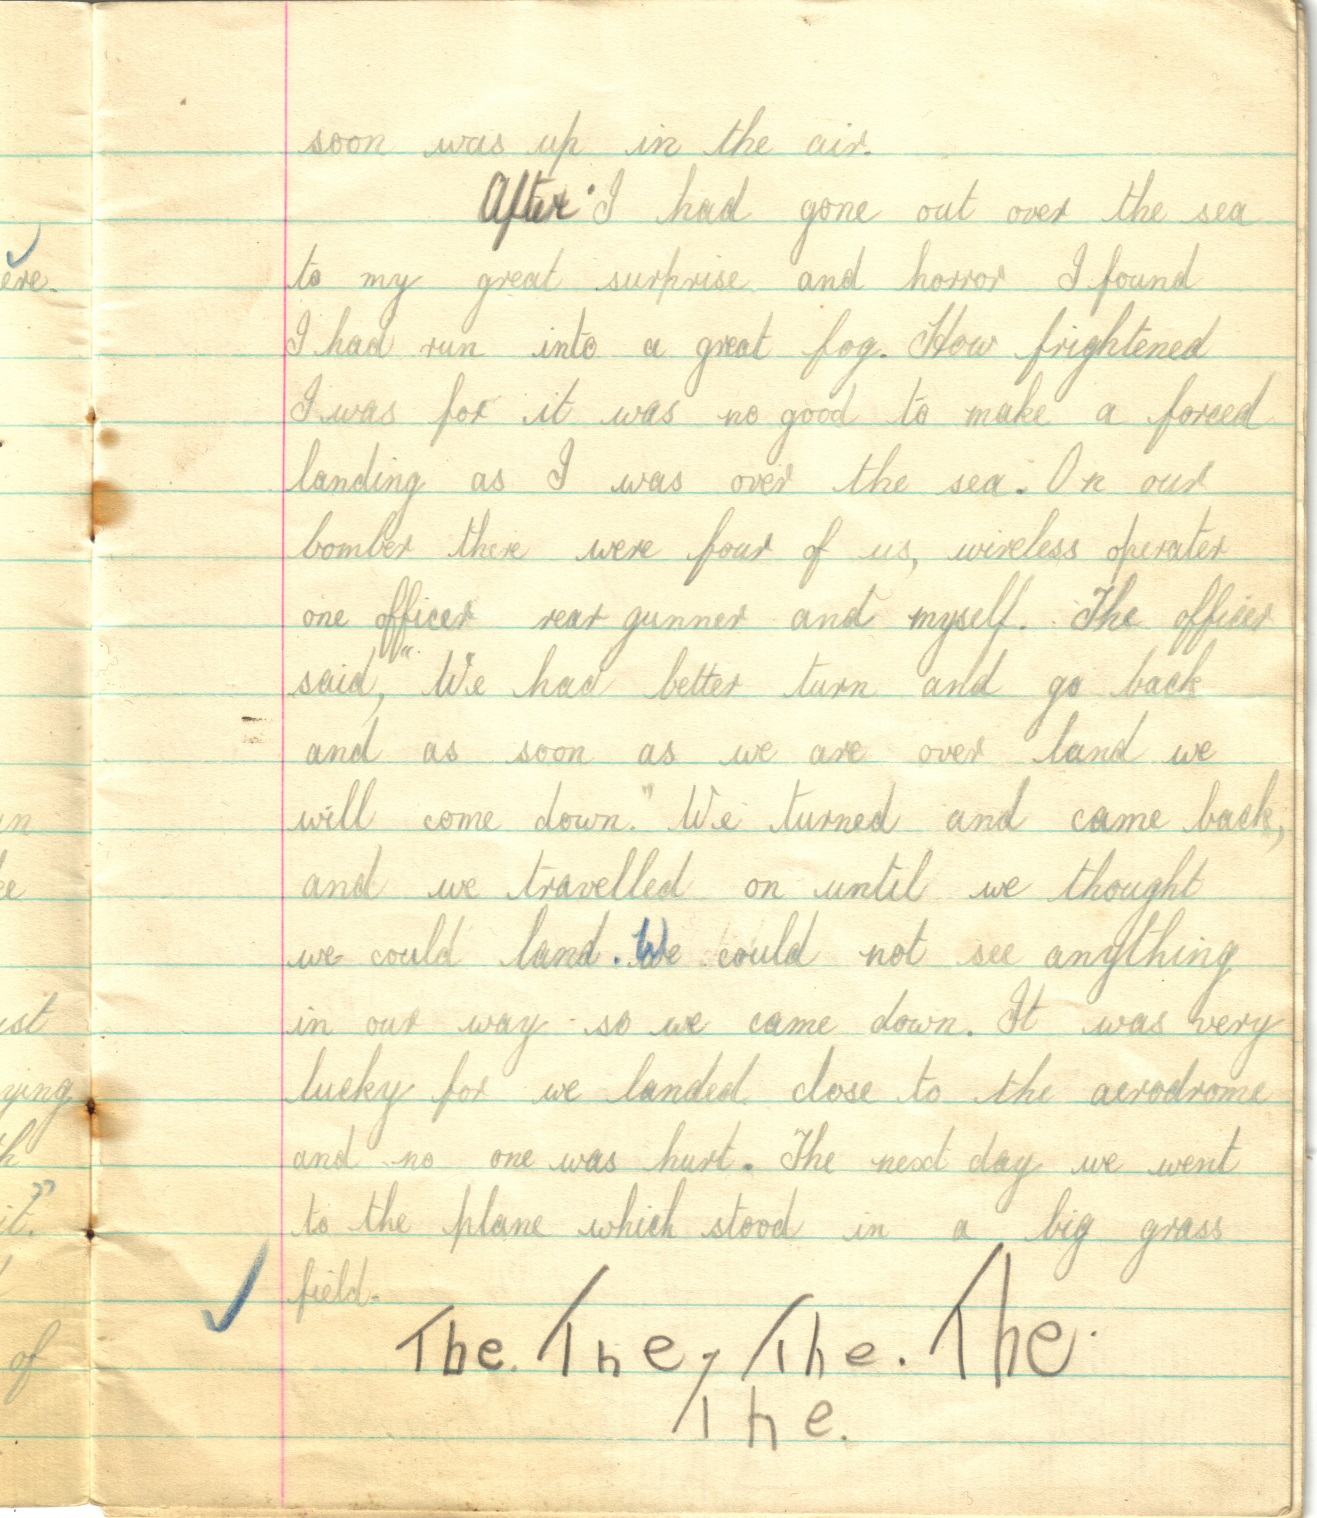 soon was up in the air.
After I had gone out over the sea
to my great surprise and horror I found
I had run into a great fog. How frightened
I was for it was no good to make a forced
landing as I was over the sea. On our
bomber there were four of us, wireless operater
one officer rear gunner and myself. The officer
said, "We had better turn and go back
and as soon as we are over land we
will come down." We turned and came back,
and we travelled on until we thought
we could land. We could not see anything
in our way so we came down. It was very
lucky for we landed close to the aerodrome
and no one was hurt. The next day we went
to the plane which stood in a big grass
field.
The. The, The. The.
The.
ere.
it."
of